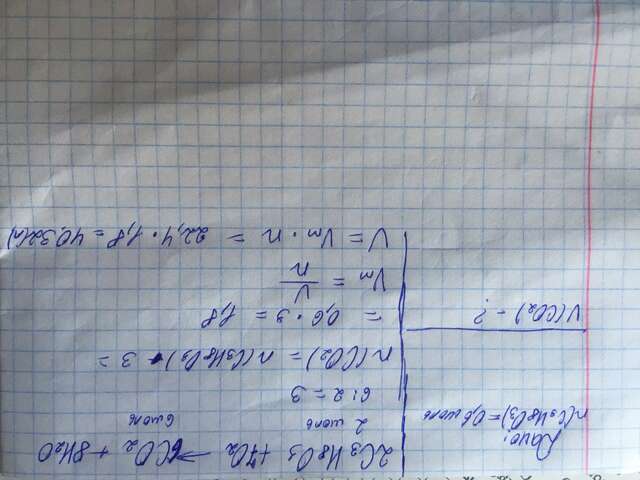 Дано:
n(C3H8O3)=0,6 моль
V(CO2) - ?
2C3H8O3 + 7O2 → 6CO2 + 8H2O
2 моль 6 моль
6:2 = 3
n(CO2) = n(C3H8O3) · 3 =
= 0,6 · 3 = 1,8
Vm = V/n
V = Vm · n = 22,4 · 1,8 = 40,32(л)